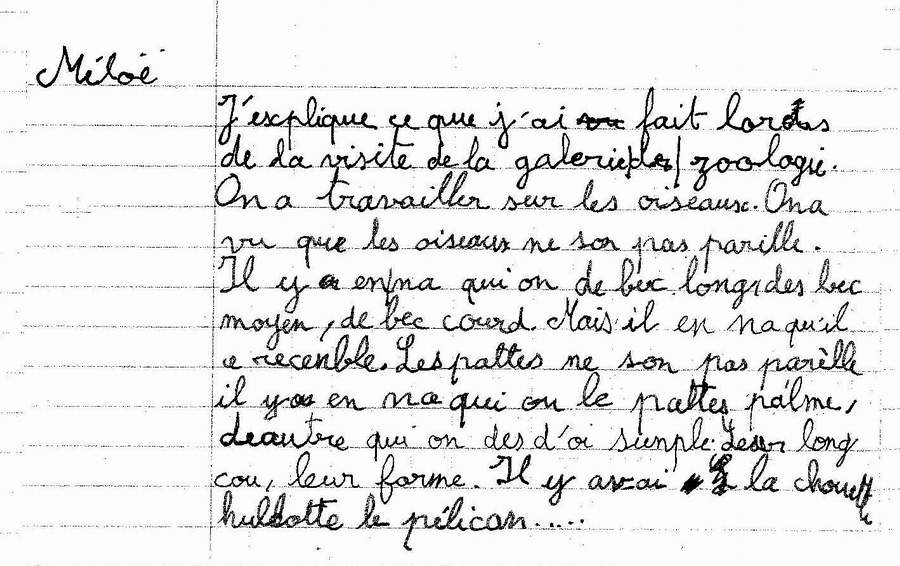 Méloë
J'explique ce que j'ai fait lors
de la visite de la galerie de zoologie.
On a travailler sur les oiseaux. On a
vu que les oiseaux ne son pas parille.
Il y a en na qui on de bec long, des bec
moyen, de bec courd. Mais il en na qu'il
e recenble. Les pattes ne son pas parèlle
il y a en na qui on le pattes palme,
deautre qui on des d'oi simple. Leur long
cou, leur forme. Il y avai la chouette
huldotte le pélican.....